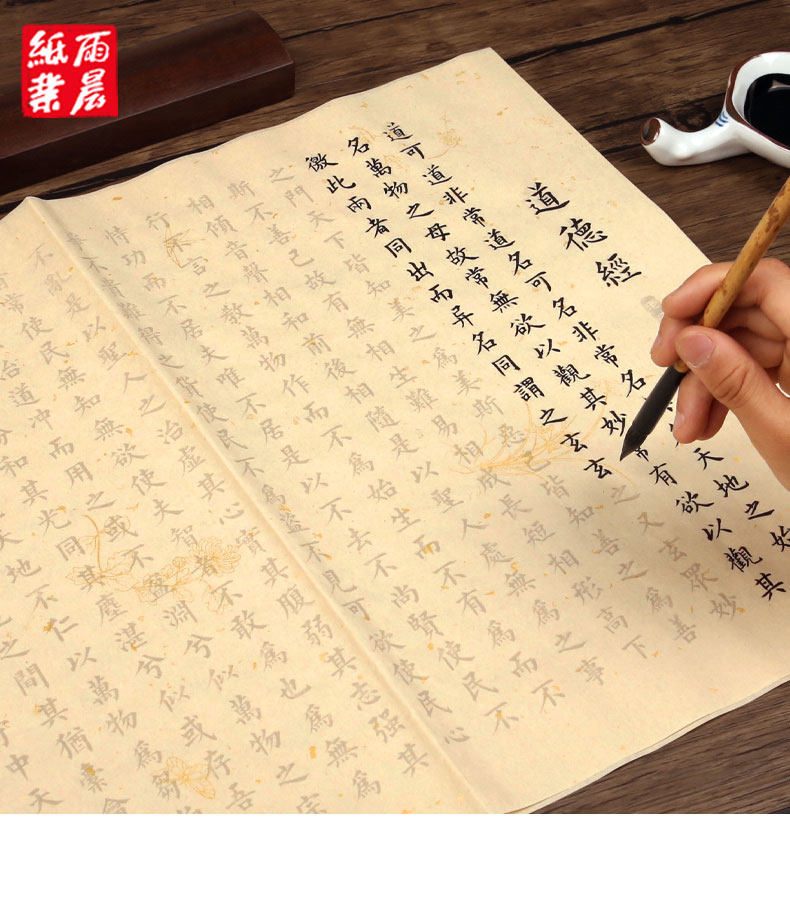 雨晨
紙業
道德經
道可道非常道名可名非常名 天地之始
名萬物之母故常無欲以觀其妙常有欲以觀其
徼此兩者同出而异名同謂之玄玄之又玄眾妙
之門天下皆知美之為美斯惡已皆知善之為善
斯不善已故有無相生難易相成長短相形高下
相傾音聲相和前後相隨是以聖人處無為之事
行不言之教萬物作而不為始生而不有為而不
恃功而不居夫唯不居是以不去不尚賢使民不
爭不貴難得之貨使民不為盜不見可欲使民心
不亂是以聖人之治虛其心實其腹弱其志強其
常使民無知無欲使夫智者不敢為也為無為
治道冲而用之或不盈淵兮似萬物之宗
分和其光同其塵湛兮似或存吾
天地不仁以萬物為芻
之間其猶橐
中天